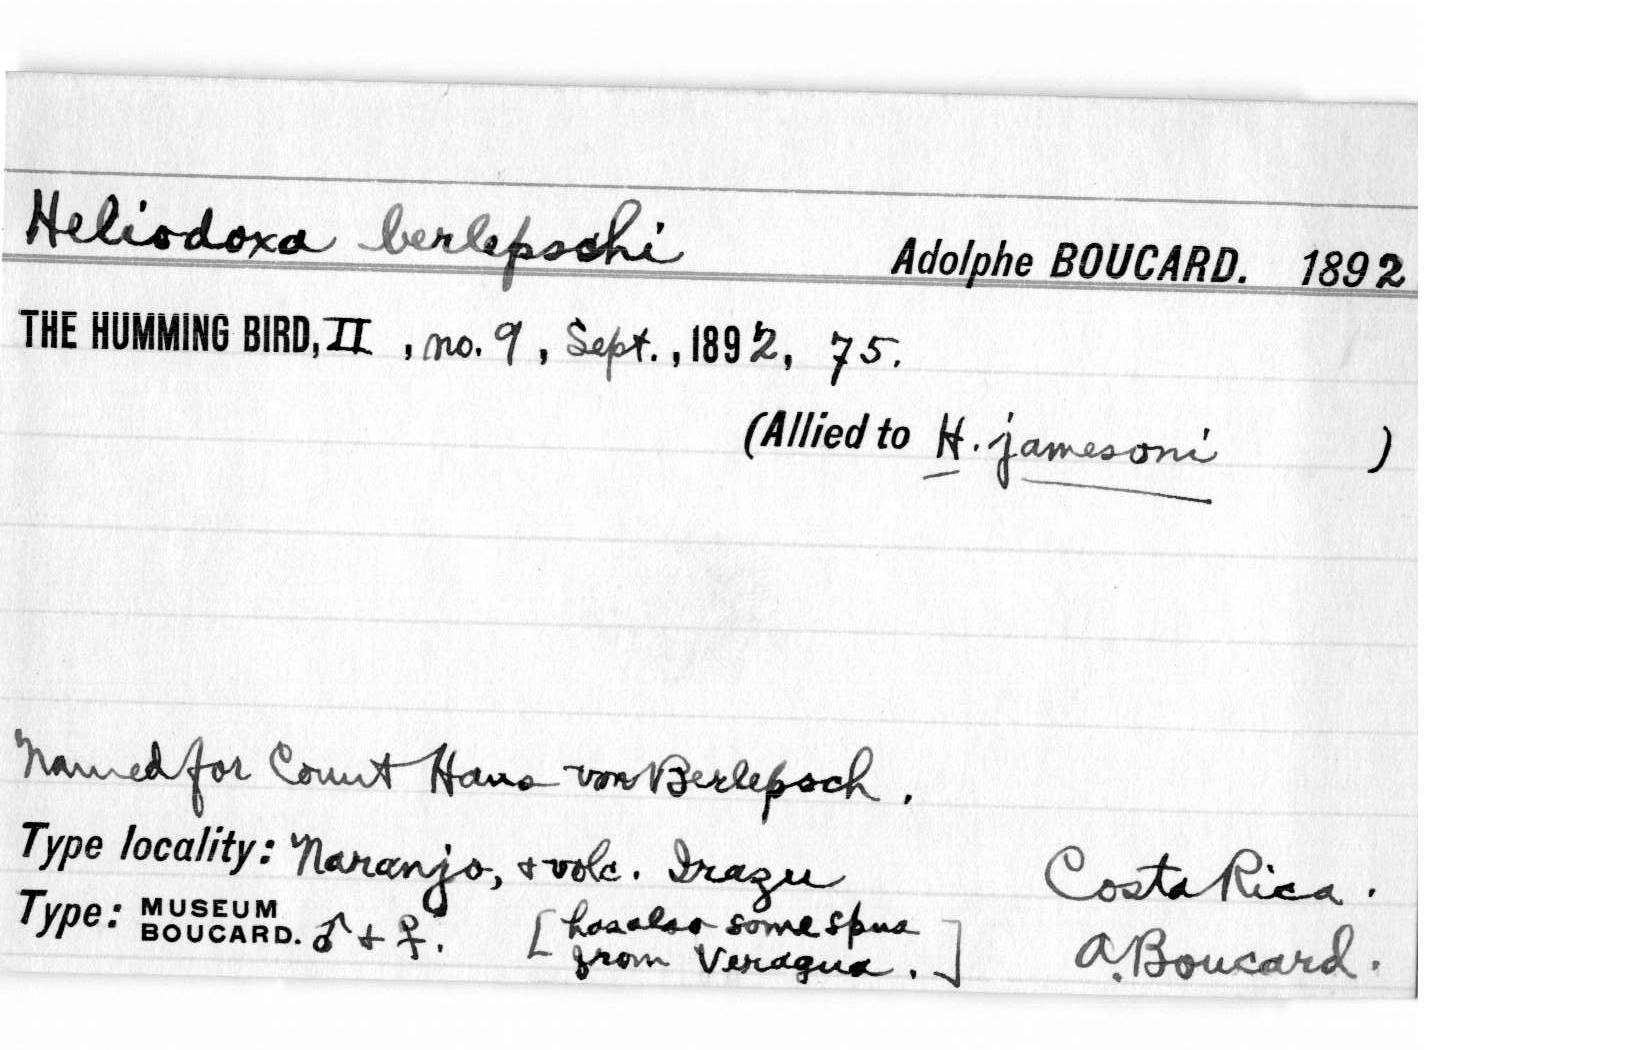 Heliodoxa berlepschi Adolphe BOUCARD. 1892
THE HUMMING BIRD, II, no. 9, Sept., 1892, 75.
(Allied to H. jamesoni )
Named for Count Hans von Berlepsch.
Type locality: Naranjo, + volc. Irazu Costa Rica.
Type: MUSEUM BOUCARD. ♂ + ♀. [has also some spns A. Boucard.
from Veragua.]